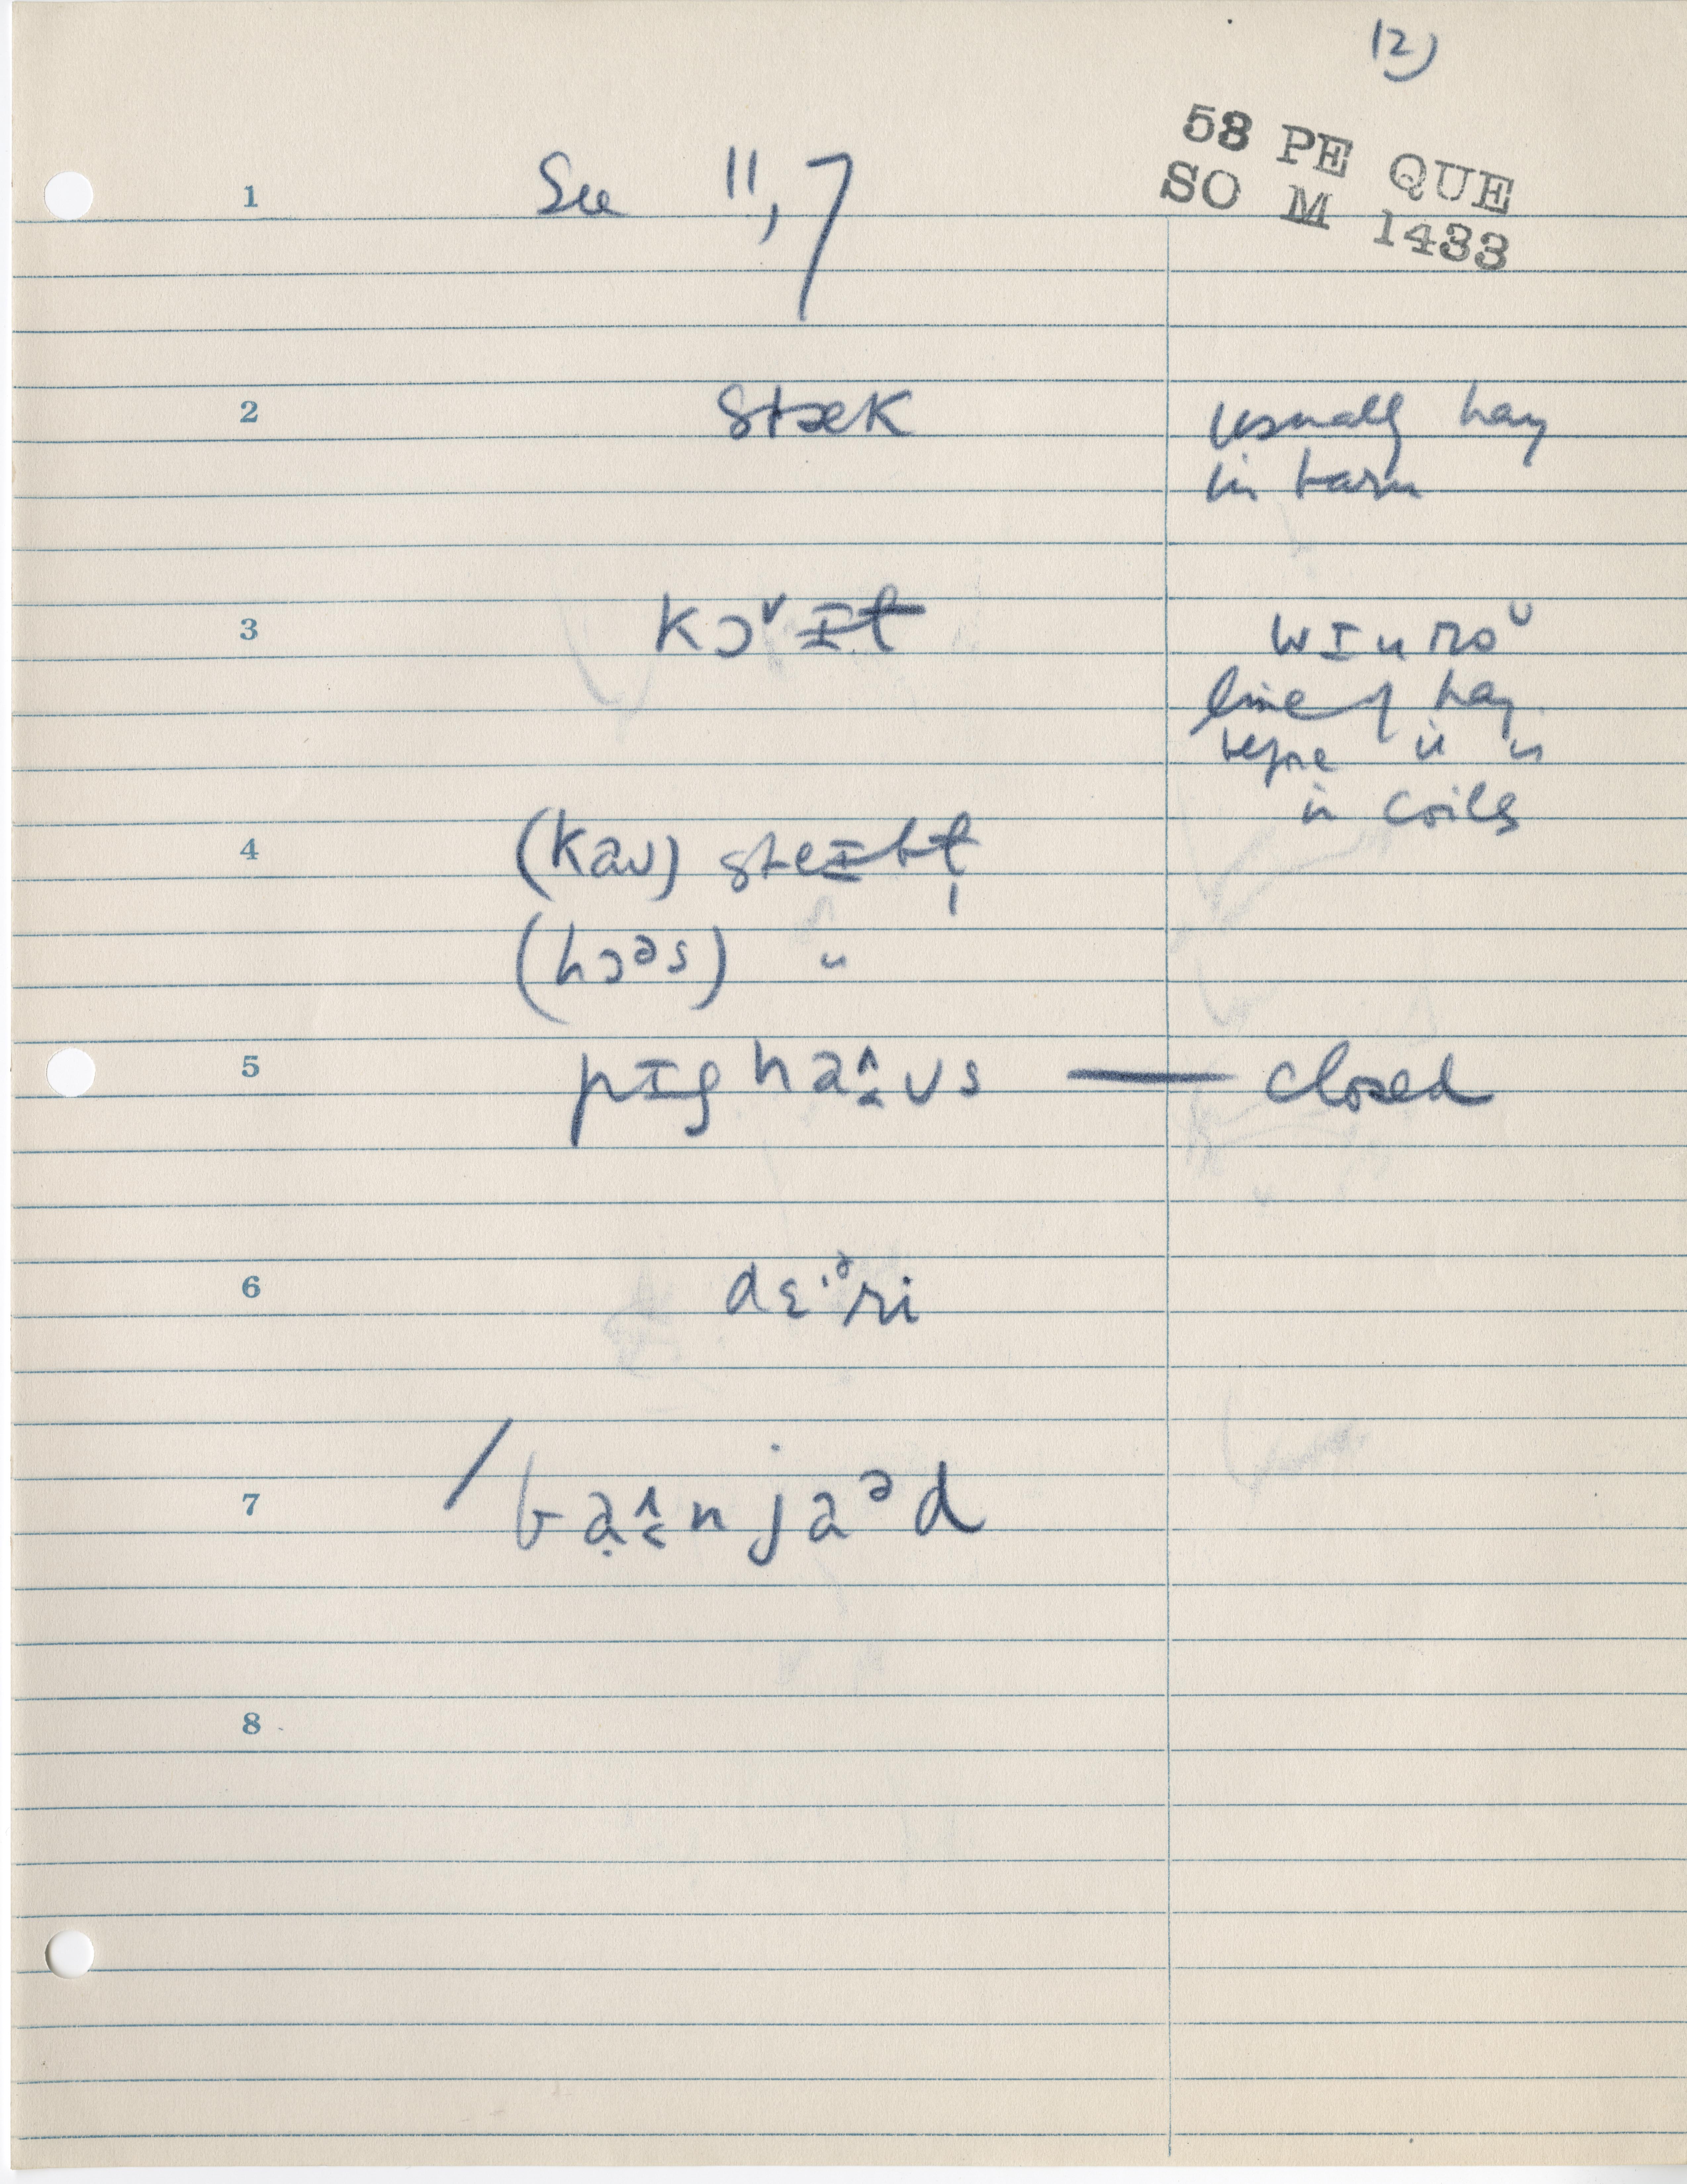 12)
58 PE QUE
SO M 1433
1 See 11,7
2 stæk usually hay
in barn
3 kɔ˅ɪɫ wɪnroᶷ
line of hay
before it is
in coils
4 (kaᴜ) steɪbɫ̩
(hɔᵊs) "
5 pɪg ha˄ᴜs — closed
6 dɛ·ᵊri
7 / ba̤˄n jaᵊd
8